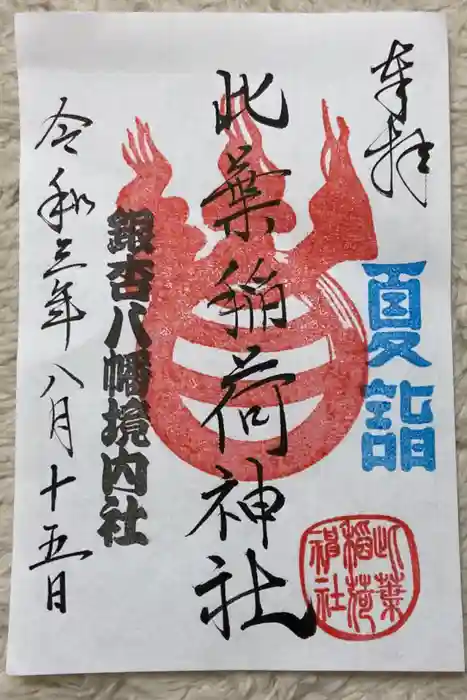 奉拝
夏詣
此葉稲荷神社
此葉
稲荷
神社
銀杏八幡境内社
令和三年八月十五日